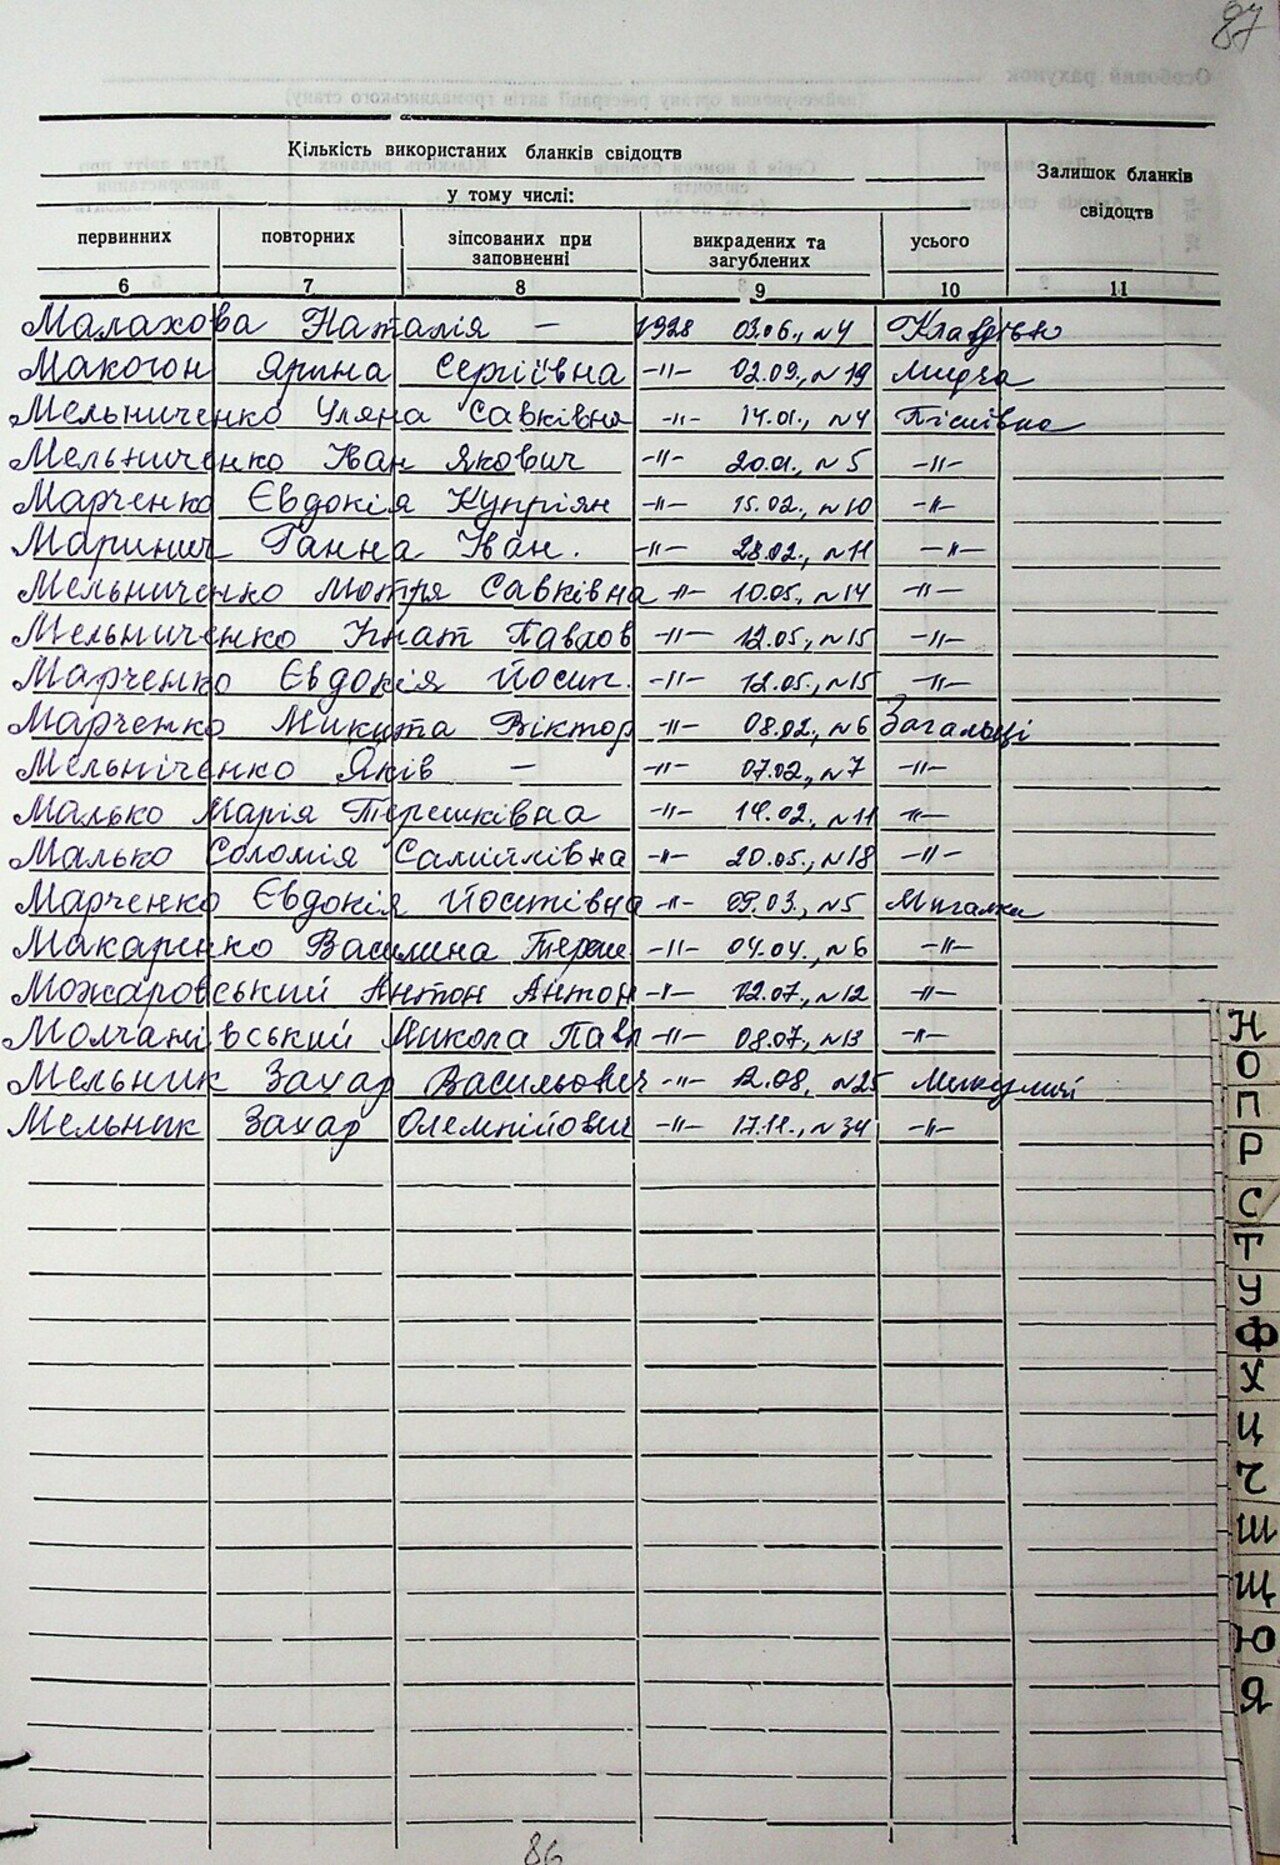 87
Кількість використаних бланків свідоцтв
Залишок бланків свідоцтв
у тому числі:
первинних повторних зіпсованих при заповненні викрадених та загублених усього
6 7 8 9 10 11
Малахова Наталія — 1928 03.06., №4
Макогон Ярина Сергіївна -"- 02.09., №19 Мирча
Мельниченко Уляна Савківна -"- 14.01., №4 Пісківка
Мельниченко Іван Якович -"- 20.01., №5 -"-
Марченко Євдокія Купріян -"- 15.02., №10 -"-
Маринич Ганна Іван. -"- 28.02., №11 -"-
Мельниченко Мотря Савківна -"- 10.05., №14 -"-
Мельниченко Ігнат Павлов -"- 12.05., №15 -"-
Марченко Євдокія Йосип. -"- 12.05., №15 -"-
Марченко Микита Віктор -"- 08.02., №6 Загальці
Мельніченко Яків — -"- 07.02., №7 -"-
Малько Марія Терешківна -"- 14.02., №11 -"-
Малько Соломія Самійлівна -"- 20.05., №18 -"-
Марченко Євдокія Йосипівна -"- 09.03., №5 Мигалки
Макаренко Василина Тереш -"- 04.04., №6 -"-
Можаровський Антон Антон -"- 12.07., №12 -"-
Молчанівський Микола Павл -"- 08.07, №13 -"-
Мельник Захар Васильович -"- 12.08, №25 Микуличі
Мельник Захар Олемпійович -"- 17.11., №34 -"-
Н
О
П
Р
С
Т
У
Ф
Х
Ц
Ч
Ш
Щ
Ю
Я
86